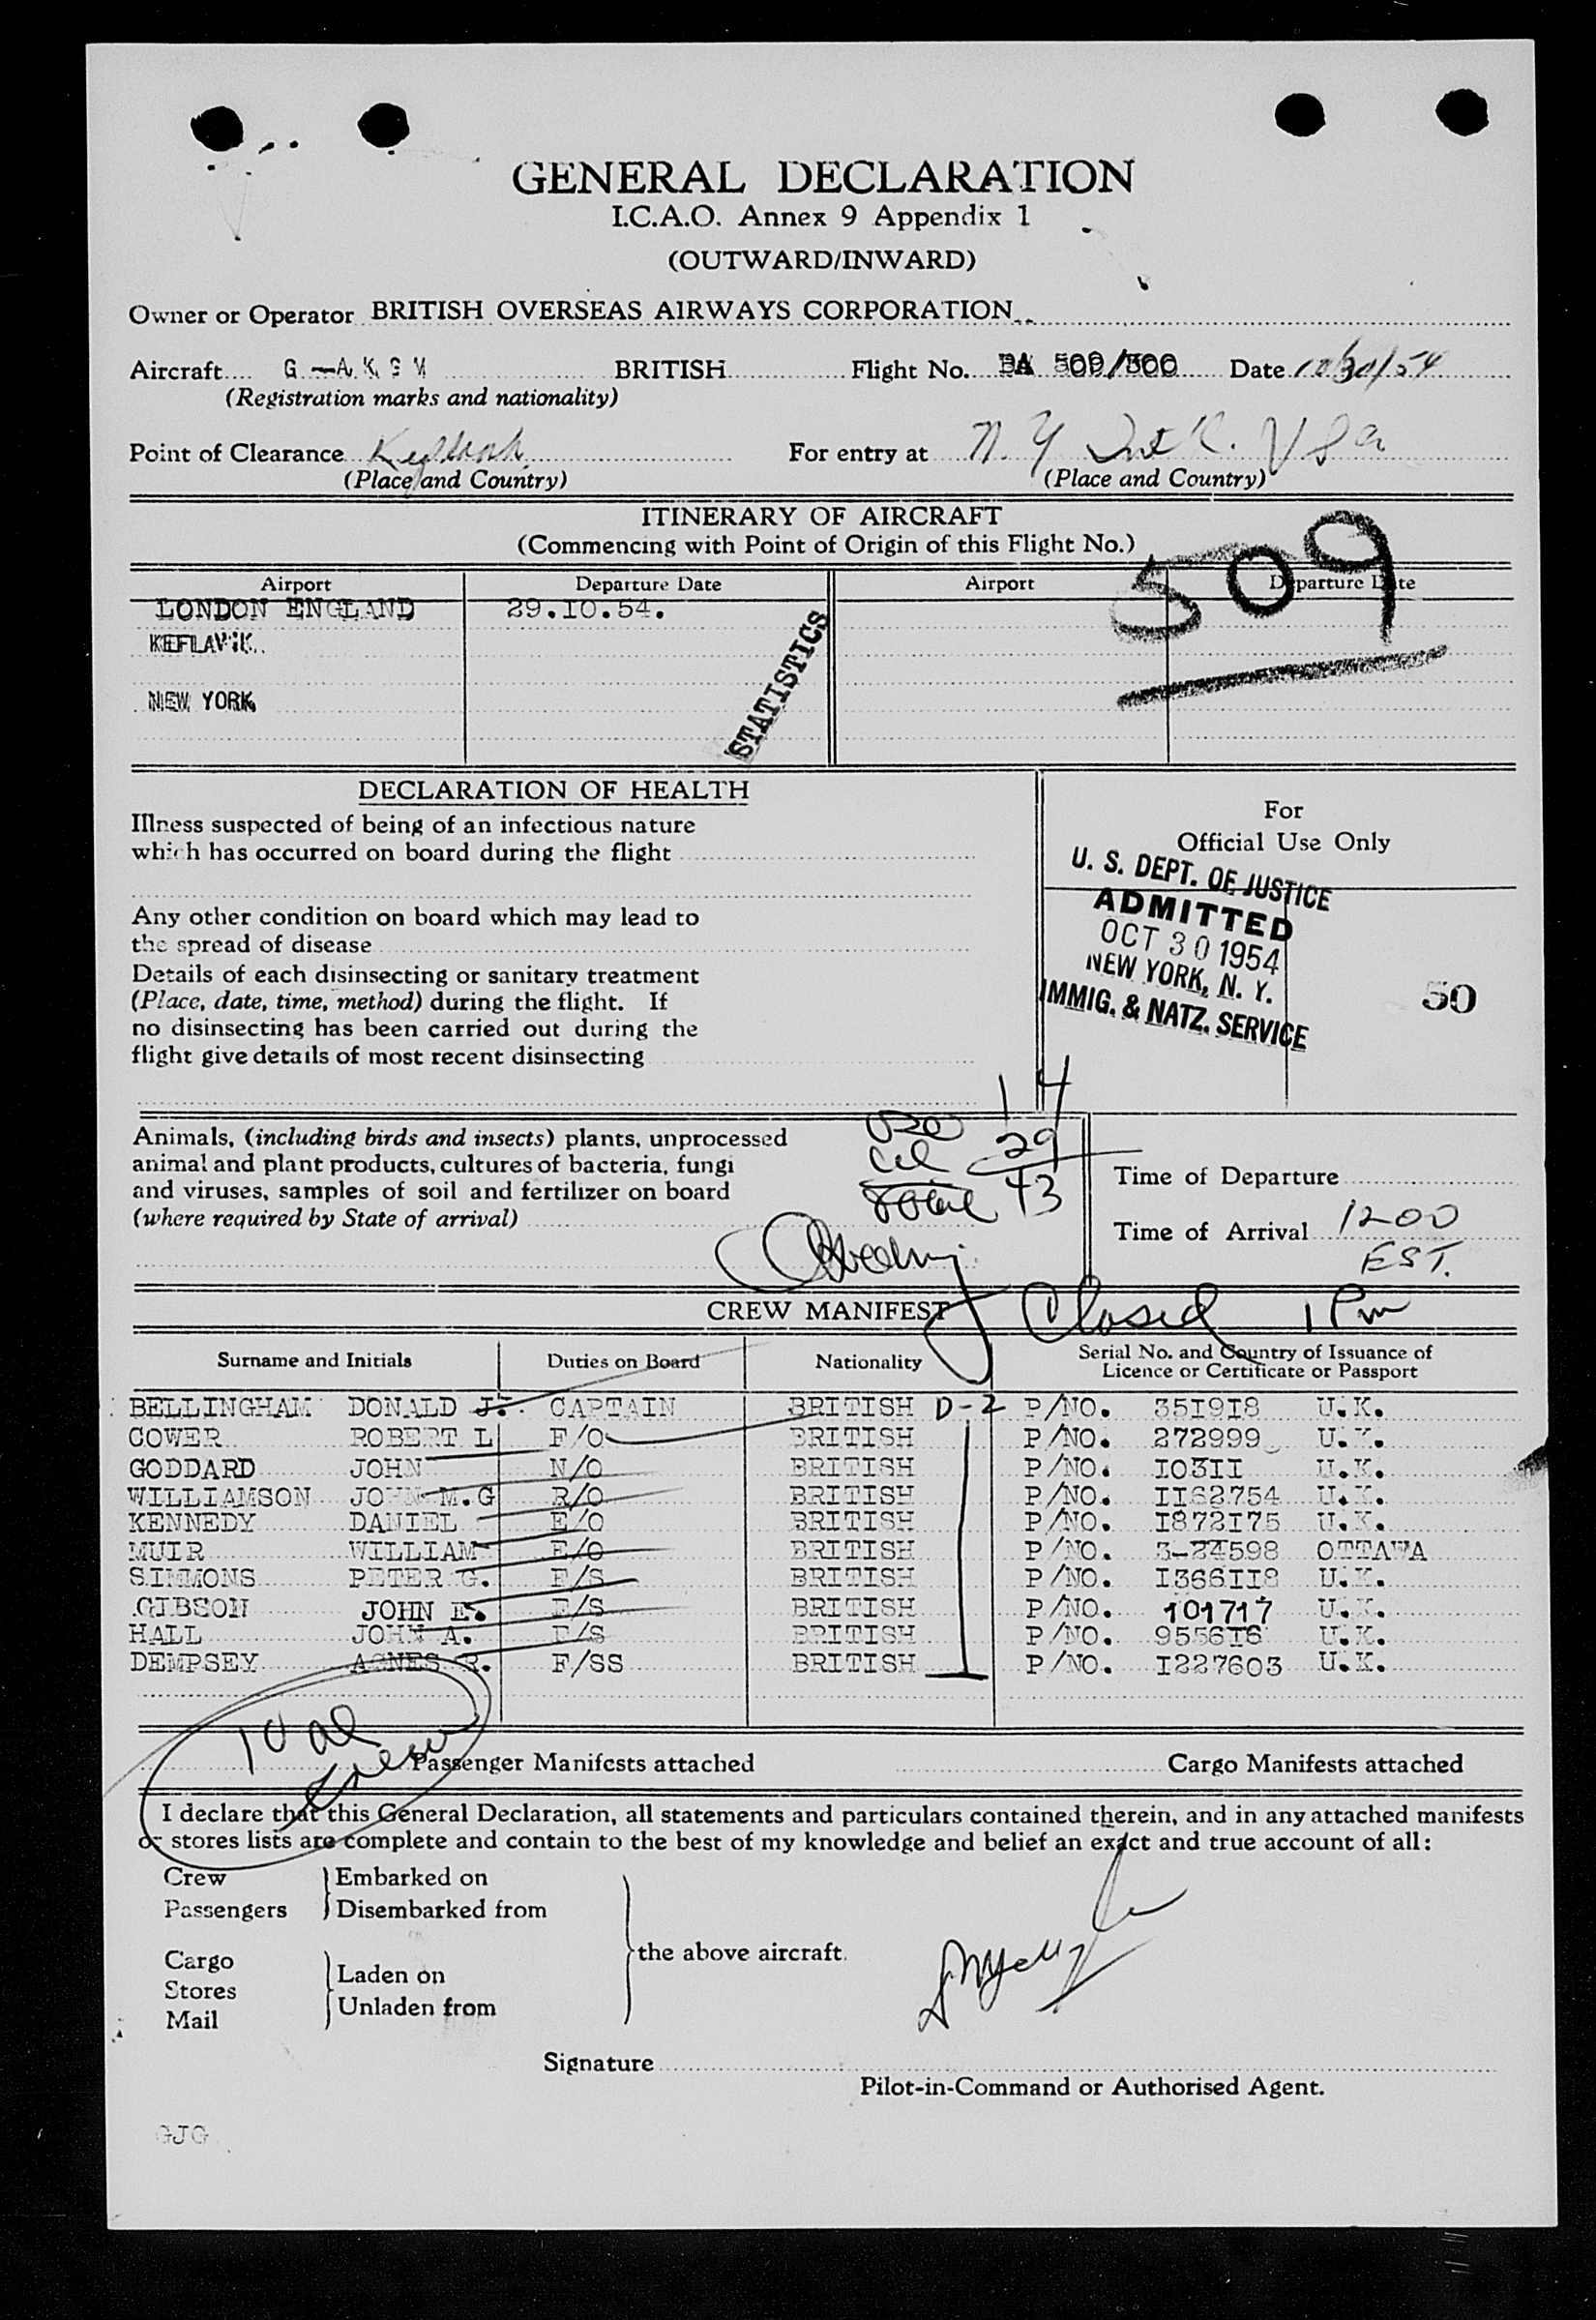 GENERAL DECLARATION
I.C.A.O. Annex 9 Appendix 1
(OUTWARD/INWARD)
Owner or Operator BRITISH OVERSEAS AIRWAYS CORPORATION
Aircraft G-AKGM BRITISH Flight No. BA 509/300 Date 10/30/54
(Registration marks and nationality)
Point of Clearance Keflavik For entry at N.Y. USA
(Place and Country) (Place and Country)
ITINERARY OF AIRCRAFT
(Commencing with Point of Origin of this Flight No.)
509
Airport Departure Date Airport Departure Date
LONDON ENGLAND 29.10.54.
KEFLAVIK.
NEW YORK
STATISTICS
DECLARATION OF HEALTH
Illness suspected of being of an infectious nature
which has occurred on board during the flight
Any other condition on board which may lead to
the spread of disease
Details of each disinsecting or sanitary treatment
(Place, date, time, method) during the flight. If
no disinsecting has been carried out during the
flight give details of most recent disinsecting
For
Official Use Only
U. S. DEPT. OF JUSTICE
ADMITTED
OCT 30 1954
NEW YORK, N. Y.
IMMIG. & NATZ. SERVICE
50
Animals, (including birds and insects) plants, unprocessed
animal and plant products, cultures of bacteria, fungi
and viruses, samples of soil and fertilizer on board
(where required by State of arrival)
USC 14
29
Total 43
Time of Departure
Time of Arrival 1200
EST.
CREW MANIFEST
Closed 1 Pm
Surname and Initials Duties on Board Nationality Serial No. and Country of Issuance of
Licence or Certificate or Passport
BELLINGHAM DONALD J. CAPTAIN BRITISH D-2 P/NO. 351918 U.K.
COWER ROBERT L F/O BRITISH P/NO. 272999 U.K.
GODDARD JOHN N/O BRITISH P/NO. 10311 U.K.
WILLIAMSON JOHN M.G R/O BRITISH P/NO. 1162754 U.K.
KENNEDY DANIEL E/O BRITISH P/NO. 1872175 U.K.
MUIR WILLIAM E/O BRITISH P/NO. 3-24598 OTTAWA
SIMMONS PETER G. F/S BRITISH P/NO. 1366118 U.K.
GIBSON JOHN E. F/S BRITISH P/NO. 101717 U.K.
HALL JOHN A. F/S BRITISH P/NO. 955616 U.K.
DEMPSEY AGNES R. F/SS BRITISH P/NO. 1227603 U.K.
10 al
Crew
Passenger Manifests attached Cargo Manifests attached
I declare that this General Declaration, all statements and particulars contained therein, and in any attached manifests
or stores lists are complete and contain to the best of my knowledge and belief an exact and true account of all:
Crew Embarked on
Passengers Disembarked from
the above aircraft.
Cargo
Laden on
Stores
Unladen from
Mail
Signature
Pilot-in-Command or Authorised Agent.
GJG